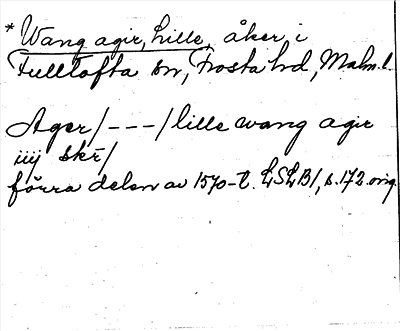 * Wang agir, lille, åker i
Fulltofta sn, Frosta hd, Malm. l.
Ager/---/lille wang agir
iiij skr̄/
förra delen av 1570-t. LSLB1, s. 172. orig.